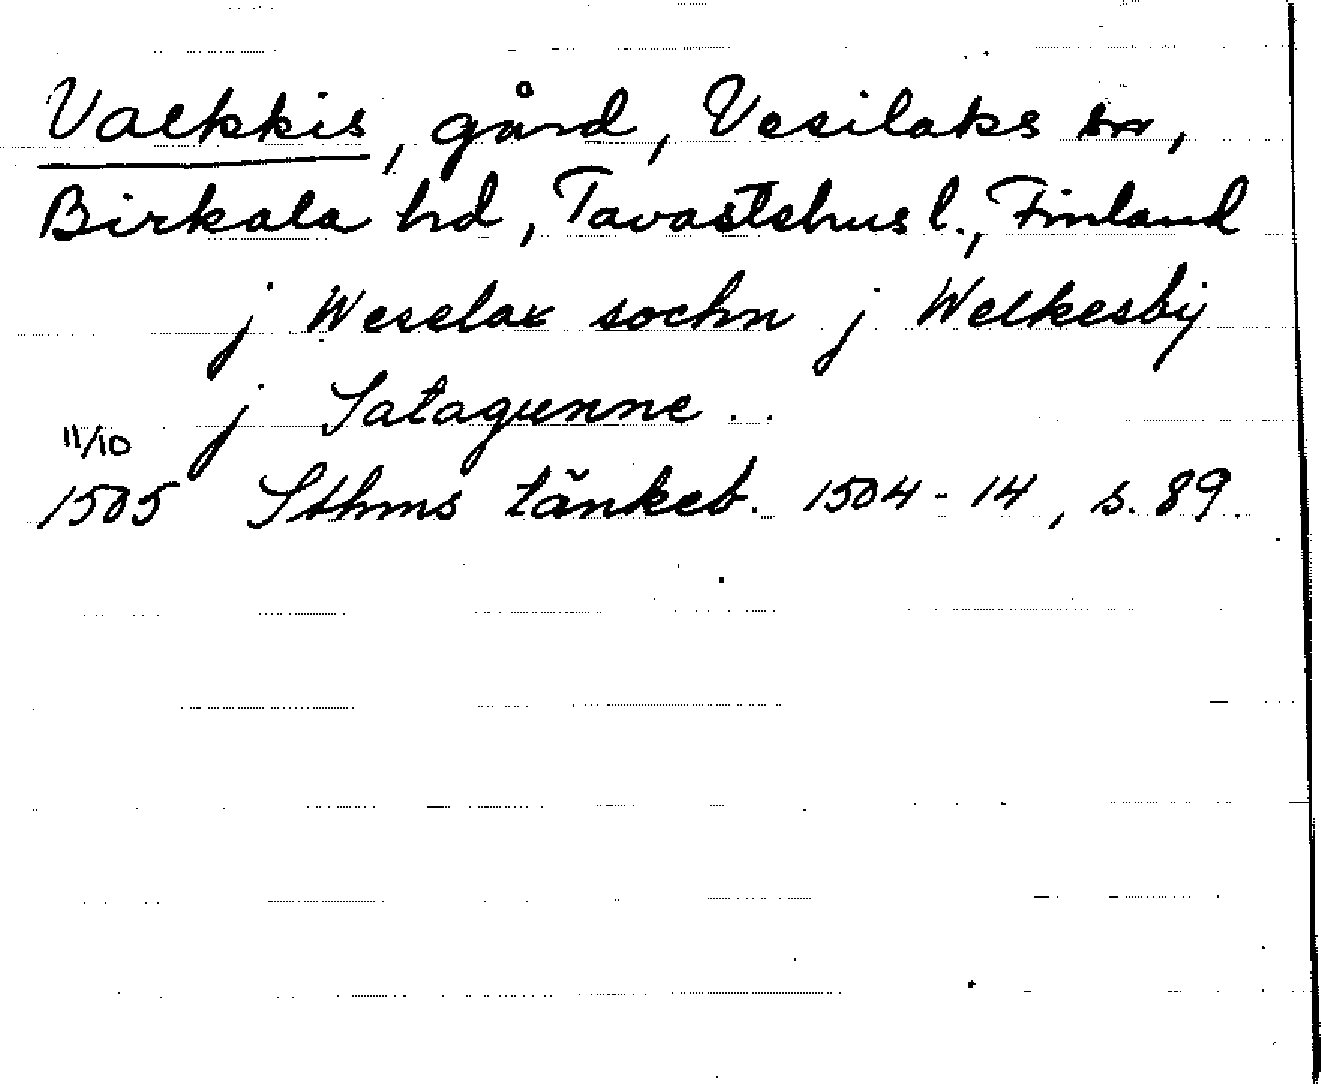 Valkkis, gård, Vesilaks sn,
Birkala hd, Tavastehus l., Finland
j Weselax sochn j Welkesby
j Satagunne ..
11/10
1505 Sthms tänkeb. 1504-14, s. 89.